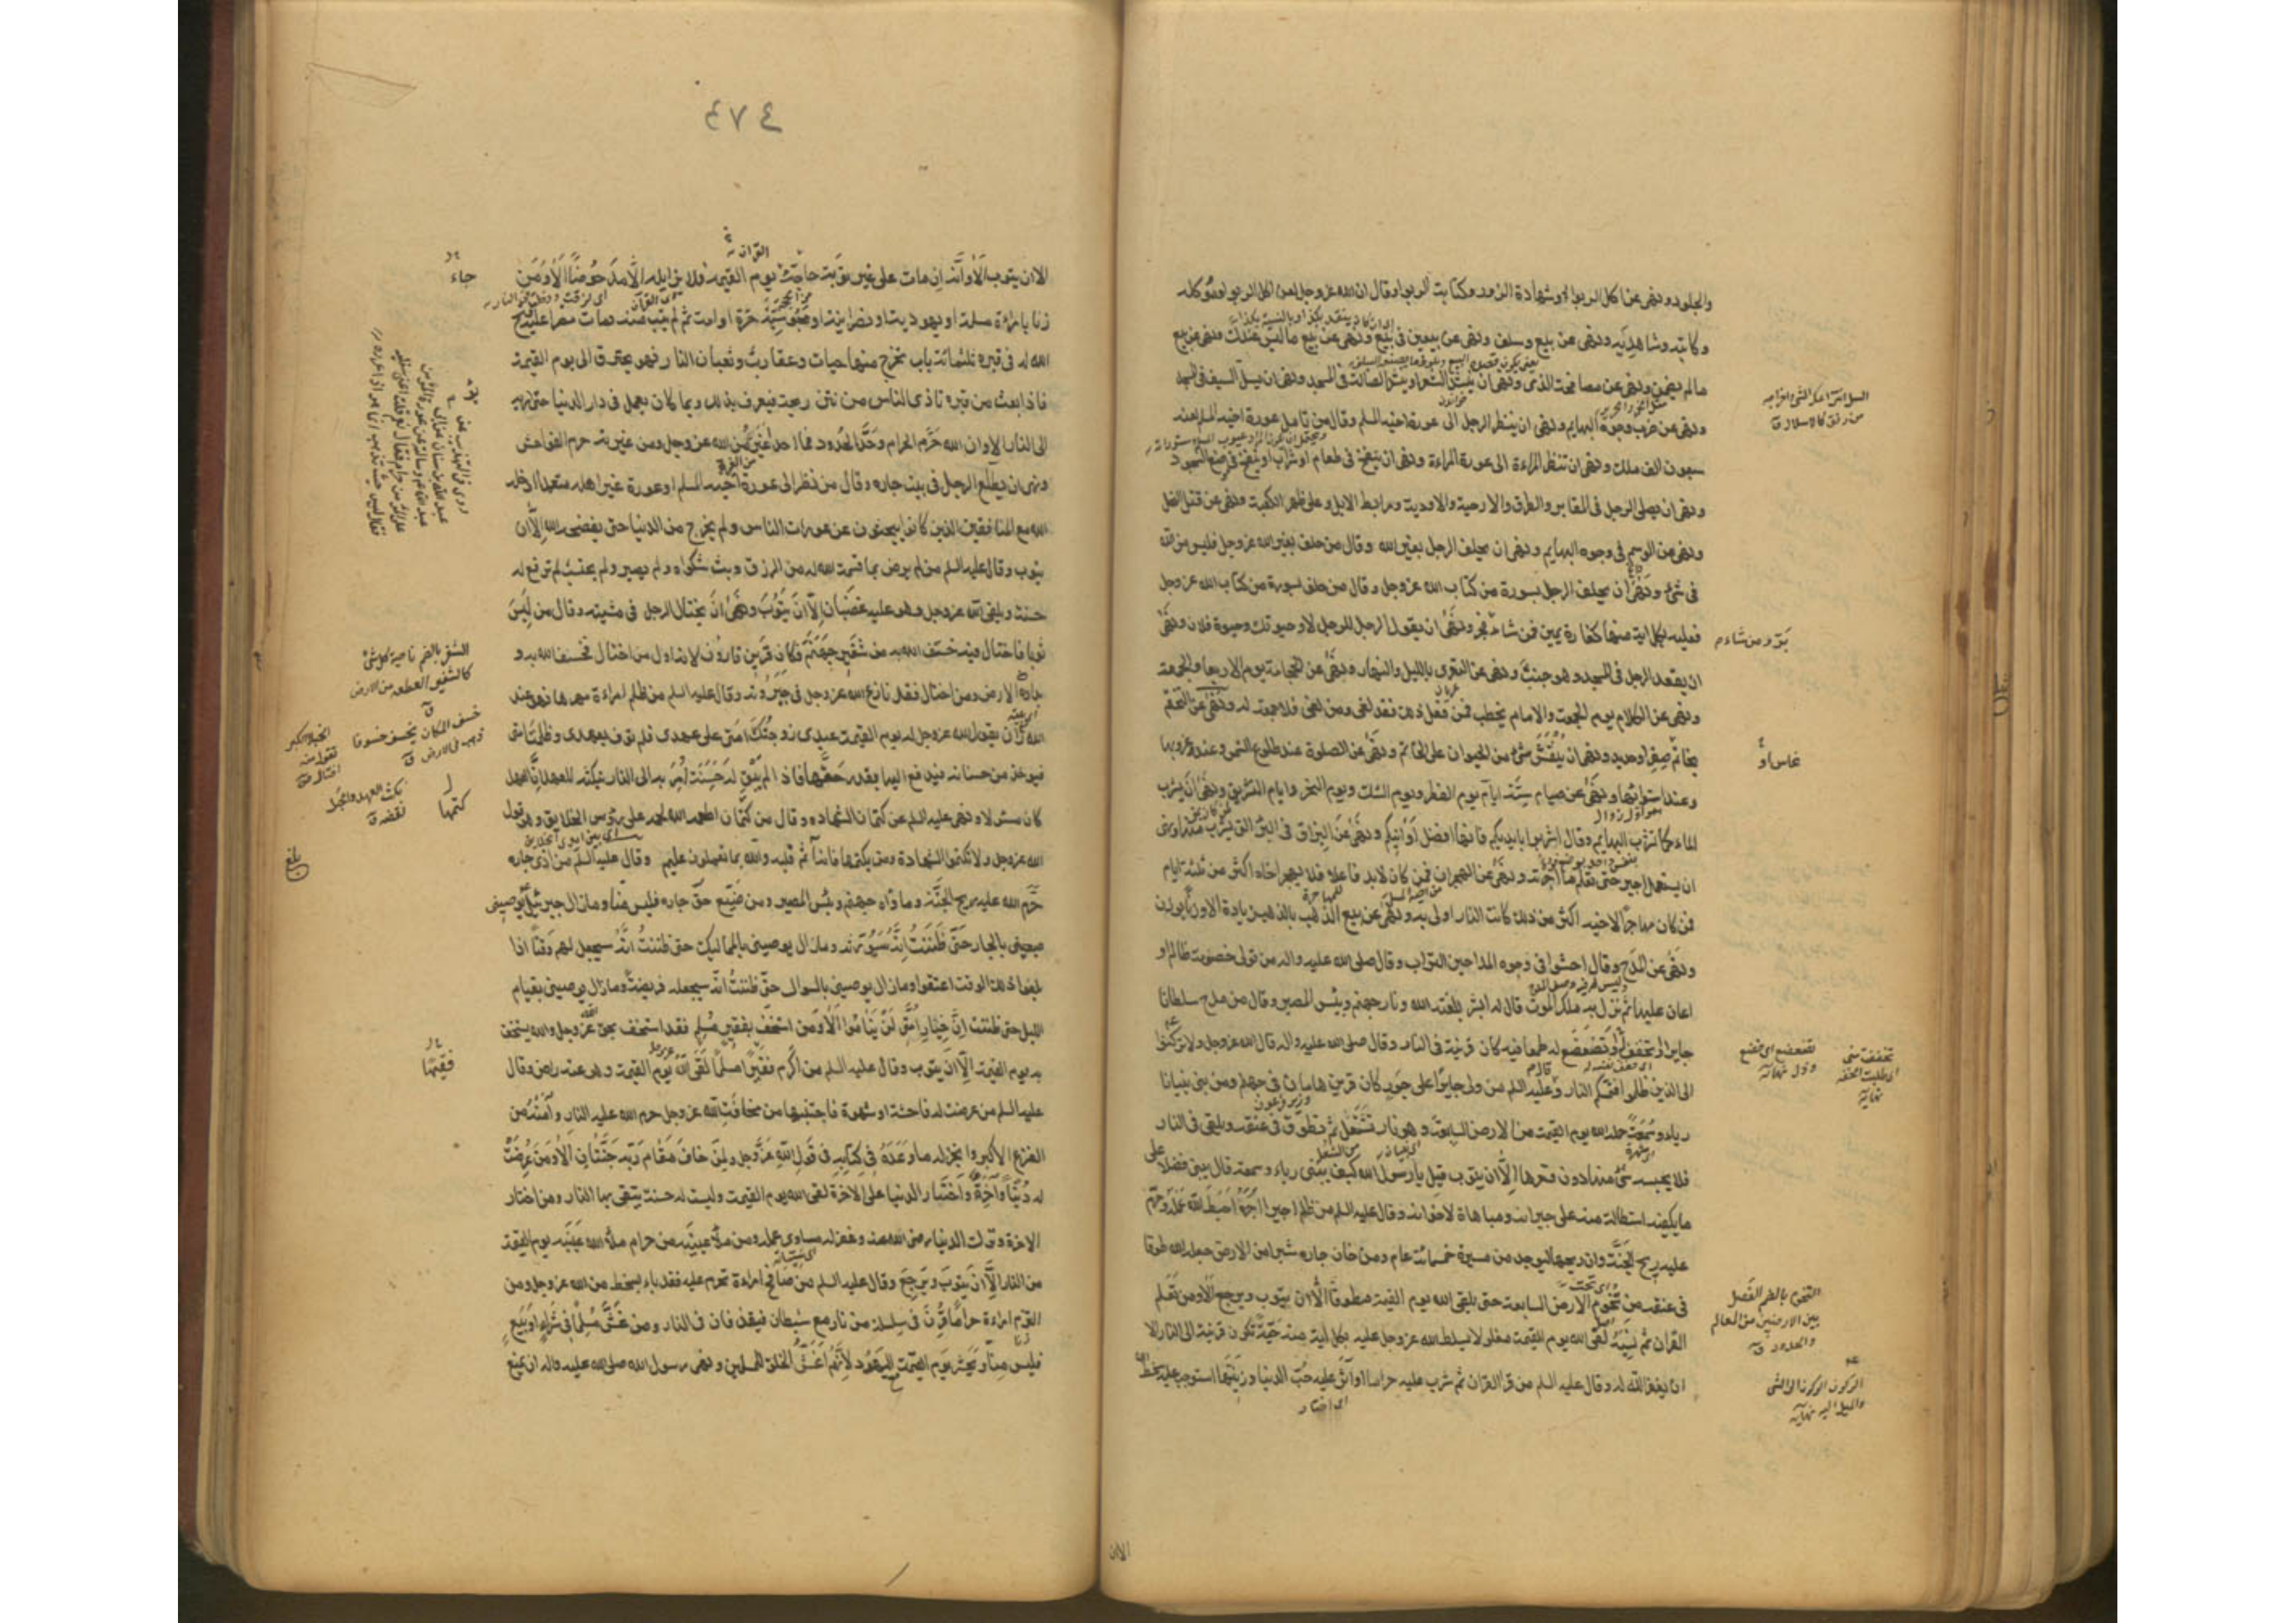 والجلود ونهى عن اكل الربوا وشهادة الزور وكتابة الربوا وقال ان الله عز وجل لعن اكل الربوا وموكله
وكاتبه وشاهديه ونهى عن بيع وسلف ونهى عن بيعين في بيع ونهى عن بيع ما ليس عندك ونهى عن بيع
ما لم يضمن ونهى عن مصافحة الذمى ونهى ان ينشد الشعر او ينشد الضالة في المسجد ونهى ان يسل السيف في المسجد
ونهى عن ضرب وجوه البهايم ونهى ان ينظر الرجل الى عورة اخيه المسلم وقال من تامل عورة اخيه المسلم لعنه
سبعون الف ملك ونهى ان تنظر المراءة الى عورة المراءة ونهى ان ينفخ في طعام او شراب او ينفخ في موضع السجود
ونهى ان يصلى الرجل في المقابر والطرق والارحية والاودية ومرابط الابل وعلى ظهر الكعبة ونهى عن قتل النحل
ونهى عن الوسم في وجوه البهايم ونهى ان يحلف الرجل بغير الله وقال من حلف بغير الله عز وجل فليس من الله
في شئ ونهى ان يحلف الرجل بسورة من كتاب الله عز وجل وقال من حلف بسورة من كتاب الله عز وجل
فعليه بكل اية منها كفارة يمين فمن شاء فجر ونهى ان يقول الرجل للرجل لا وحيوتك وحيوة فلان ونهى
بر ومن شاء
ان يقعد الرجل في المسجد وهو جنب ونهى عن التعرى بالليل والنهار ونهى عن الحجامة يوم الاربعا والجمعة
ونهى عن الكلام يوم الجمعة والامام يخطب فمن فعل ذلك فقد لغى ومن لغى فلا جمعة له ونهى عن التختم
بخاتم صفر او حديد ونهى ان ينقش شئ من الحيوان على الخاتم ونهى عن الصلوة عند طلوع الشمس وعند غروبها
وعند استوائها ونهى عن صيام ستة ايام يوم الفطر ويوم الشك ويوم النحر وايام التشريق ونهى ان يشرب
الماء كما تشرب البهايم وقال اشربوا بايديكم فانها افضل اوانيكم ونهى عن البزاق في البئر التي يشرب منها ونهى
ان يستعمل اجير حتى يعلم ما اجرته ونهى عن الهجران فمن كان لا بد فاعلا فلا يهجر اخاه اكثر من ثلثة ايام
فمن كان مهاجرا لاخيه اكثر من ذلك كانت النار اولى به ونهى عن بيع الذهب بالذهب زيادة الا وزنا بوزن
ونهى عن المدح وقال احثوا في وجوه المداحين التراب وقال صلى الله عليه واله من تولى خصومة ظالم او
اعان عليها ثم نزل به ملك الموت قال له ابشر بلعنة الله ونار جهنم وبئس المصير وقال من مدح سلطانا
جايرا او تخفف او تضعضع له طمعا فيه كان قرينه في النار وقال صلى الله عليه واله قال الله عز وجل ولا تركنوا
الى الذين ظلموا فتمسكم النار وقال عليه السلم من ولى جايرا على جور كان قرين هامان في جهنم ومن بنى بنيانا
رياء وسمعة حمله الله يوم القيمة من الارض السابعة وهو نار تشتعل ثم تطوق في عنقه ويلقى في النار
فلا يحبسه شئ منها دون قعرها الا ان يتوب قيل يا رسول الله كيف يبنى رياء وسمعة قال يبنى فضلا على
ما يكفيه استطالة منه على جيرانه ومباهاة لاخوانه وقال عليه السلم من ظلم اجيرا اجره احبط الله عمله وحرم
عليه ريح الجنة وان ريحها ليوجد من مسيرة خمسمائة عام ومن خان جاره شبرا من الارض جعله الله طوقا
في عنقه من تخوم الارض السابعة حتى يلقى الله يوم القيمة مطوقا الا ان يتوب ويرجع الا ومن تعلم
القران ثم نسيه لقى الله يوم القيمة مغلولا يسلط الله عز وجل عليه بكل اية منه حية تكون قرينه الى النار الا
ان يغفر الله له وقال عليه السلم من قرا القران ثم شرب عليه حراما او آثر عليه حب الدنيا وزينتها استوجب عليه سخط الله
اى اختار
التخوم بالضم الفصل
بين الارضين من المعالم
والحدود
الركون السكون الى الشئ
والميل اليه نهاية
الا ان
٤٧٤
القران
الا ان يتوب الا وانه ان مات على غير توبة حاجه يوم القيمة فلا يزايله الا مدحوضا الا ومن
جاء
زنا بامراءة مسلمة او يهودية او نصرانية او مجوسية حرة او امة ثم لم يتب منه ومات مصرا عليه فتح
الله له في قبره ثلثمائة باب تخرج منها حيات وعقارب وثعبان النار فهو يحترق الى يوم القيمة
فاذا بعث من قبره تاذى الناس من نتن ريحه فيعرف بذلك وبما كان يعمل في دار الدنيا حتى يؤمر به
الى النار الا وان الله حرم الحرام وحد الحدود فما احد اغير من الله عز وجل ومن غيرته حرم الفواحش
ونهى ان يطلع الرجل في بيت جاره وقال من نظر الى عورة اخيه المسلم او عورة غير اهله متعمدا ادخله
الله مع المنافقين الذين كانوا يبحثون عن عورات الناس ولم يخرج من الدنيا حتى يفضحه الله الا ان
يتوب وقال عليه السلم من لم يرض بما قسمه الله له من الرزق وبث شكواه ولم يصبر ولم يحتسب لم ترفع له
حسنة ويلقى الله عز وجل وهو عليه غضبان الا ان يتوب ونهى ان يختال الرجل في مشيته وقال من لبس
ثوبا فاختال فيه خسف الله به من شفير جهنم فكان قرين قارون لانه اول من اختال فخسف الله به و
بداره الارض ومن اختال فقد نازع الله عز وجل في جبروته وقال عليه السلم من ظلم امراءة مهرها فهو عند
الله زان يقول الله عز وجل له يوم القيمة عبدى زوجتك امتى على عهدى فلم توف بعهدى وظلمت امتى
فيؤخذ من حسناته فيدفع اليها بقدر حقها فاذا لم يبق له حسنة امر به الى النار بنكثه للعهد ان العهد
كان مسئولا ونهى عليه السلم عن كتمان الشهادة وقال من كتمها اطعمه الله لحمه على رؤس الخلايق وهو قول
كتمها
الله عز وجل ولا تكتموا الشهادة ومن يكتمها فانه آثم قلبه والله بما تعملون عليم وقال عليه السلم من اذى جاره
حرم الله عليه ريح الجنة وماواه جهنم وبئس المصير ومن ضيع حق جاره فليس منا وما زال جبرئيل يوصينى
بالجار حتى ظننت انه سيورثه وما زال يوصينى بالمماليك حتى ظننت انه سيجعل لهم وقتا اذا
بلغوا ذلك الوقت اعتقوا وما زال يوصينى بالسواك حتى ظننت انه سيجعله فريضة وما زال يوصينى بقيام
الليل حتى ظننت ان خيار امتى لن يناموا الا ومن استخف بفقير مسلم فقد استخف بحق الله عز وجل والله يستخف
به يوم القيمة الا ان يتوب وقال عليه السلم من اكرم فقيرا مسلما لقى الله يوم القيمة وهو عنه راض وقال
عليه السلم من عرضت له فاحشة او شهوة فاجتنبها من مخافة الله عز وجل حرم الله عليه النار وآمنه من
الفزع الاكبر وانجز له ما وعده في كتابه في قول الله عز وجل ولمن خاف مقام ربه جنتان الا ومن عرضت
له دنيا وآخرة واختار الدنيا على الاخرة لقى الله يوم القيمة وليست له حسنة يتقى بها النار ومن اختار
الاخرة وترك الدنيا رضى الله عنه وغفر له مساوى عمله ومن ملأ عينيه من حرام ملأ الله عينيه يوم القيمة
من النار الا ان يتوب ويرجع وقال عليه السلم من صافح امراءة تحرم عليه فقد باء بسخط من الله عز وجل ومن
التزم امراءة حراما قرن في سلسلة من نار مع شيطان فيقذفان في النار ومن غش مسلما في شراء او بيع
فليس منا ويحشر يوم القيمة مع اليهود لانهم اغش الخلق للمسلمين ونهى رسول الله صلى الله عليه واله ان يمنع